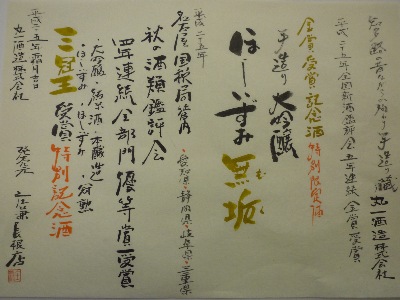 知多郡の昔ながらの純わり手造り蔵 丸一酒造株式会社
平成二五年全国新酒鑑評会五年連続金賞受賞
金賞受賞記念酒特別限定酒
手造り大吟醸
ほしいずみ無垢
むく
平成二五年
名古屋国税局管内
・愛知県・静岡県・岐阜県・三重県
秋の酒類鑑評会
四年連続全部門優等賞受賞
・大吟醸・純米酒・本醸造
・ほしいずみ・ほしいずみ・分熟
三冠王受賞特別記念酒
平成二五年 月吉日
丸一酒造株式会社
発売元